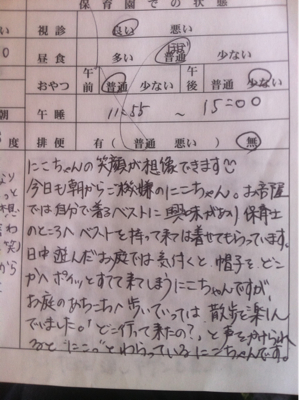 保育園での状態
い 視診 良い 悪い
0 昼食 多い 普通 少ない
おやつ 午前 普通 少ない 午後 普通 少ない
朝 午睡 11:55 ～ 15:00
度 排便 有 ( 普通 悪い ) 無
にこちゃんの笑顔が想像できます
今日も朝からご機嫌のにこちゃん。お部屋
では自分で着るベストに興味があり保育士
のところへベストを持って来ては着せてもらっています。
日中遊んだお庭では気付くと帽子をどこ
かへポイッとすて来てしまうにこちゃんですが、
お庭のあちこちへ歩いていっては散歩を楽しん
でいました。"どこ行って来たの?"と声をかけられ
ると"にこっ"とわらっているにこちゃんです。